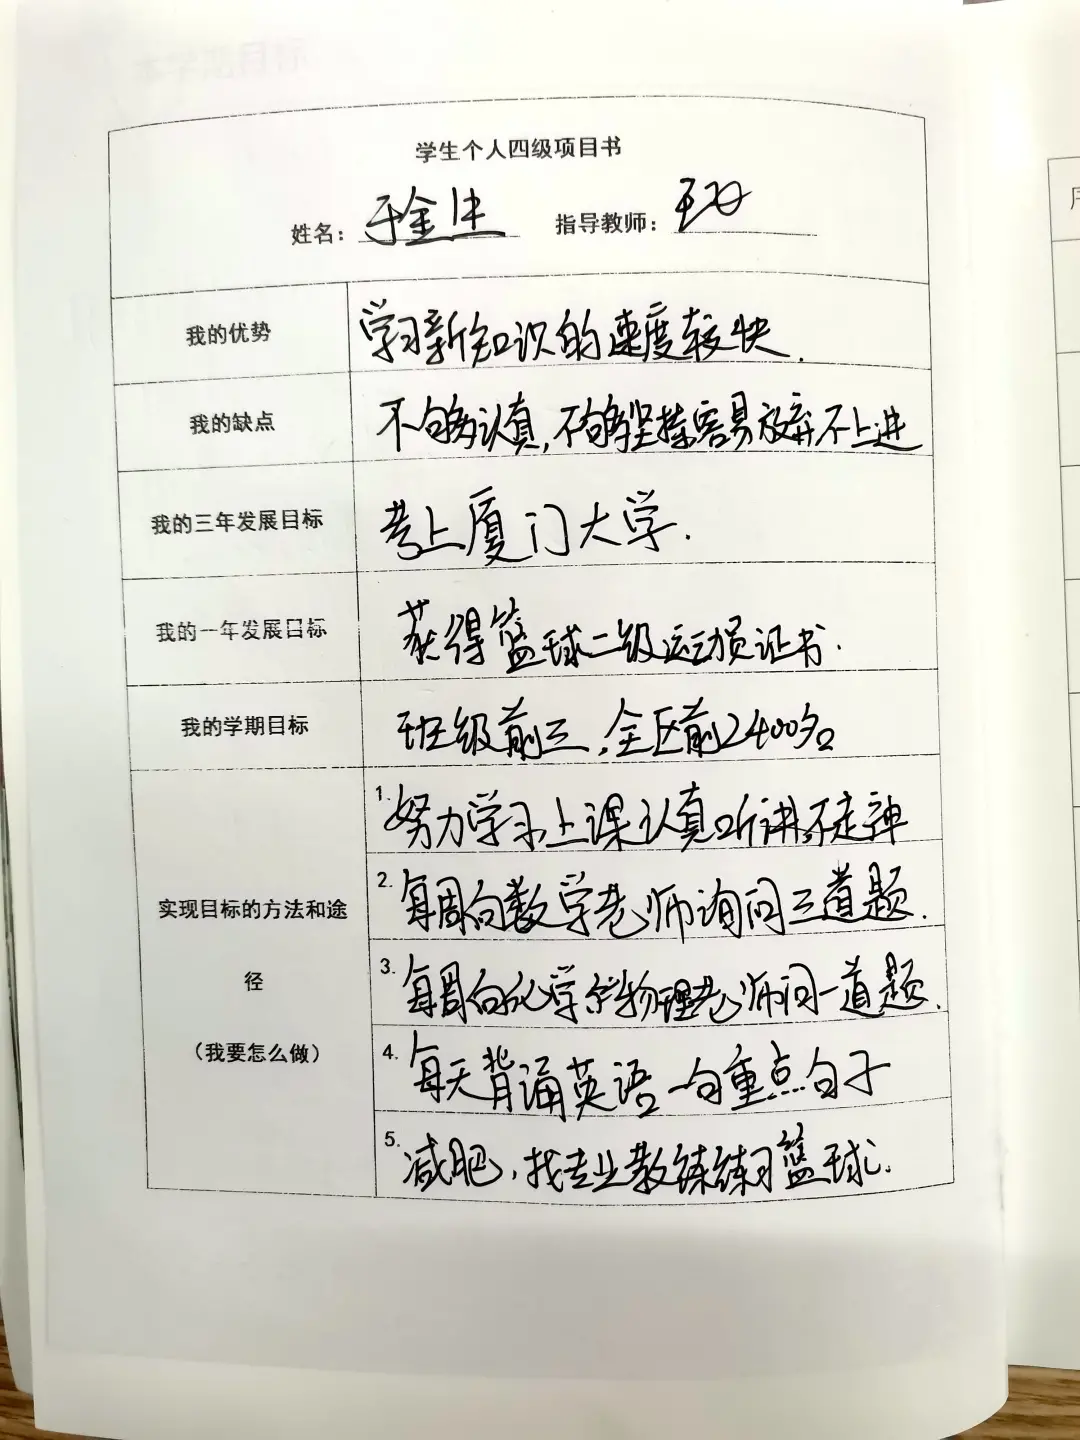 本学期目标
学生个人四级项目书
姓名：于金 指导教师：王
我的优势
学习新知识的速度较快.
我的缺点
不够认真,不够坚持容易放弃不上进
我的三年发展目标
考上厦门大学.
我的一年发展目标
获得篮球二级运动员证书.
我的学期目标
班级前三,全区前2400名
实现目标的方法和途
径
（我要怎么做）
1. 努力学习,上课认真听讲,不走神
2. 每周向数学老师询问三道题.
3. 每周向化学物理老师问一道题.
4. 每天背诵英语一句重点句子
5. 减肥,找专业教练练习篮球.